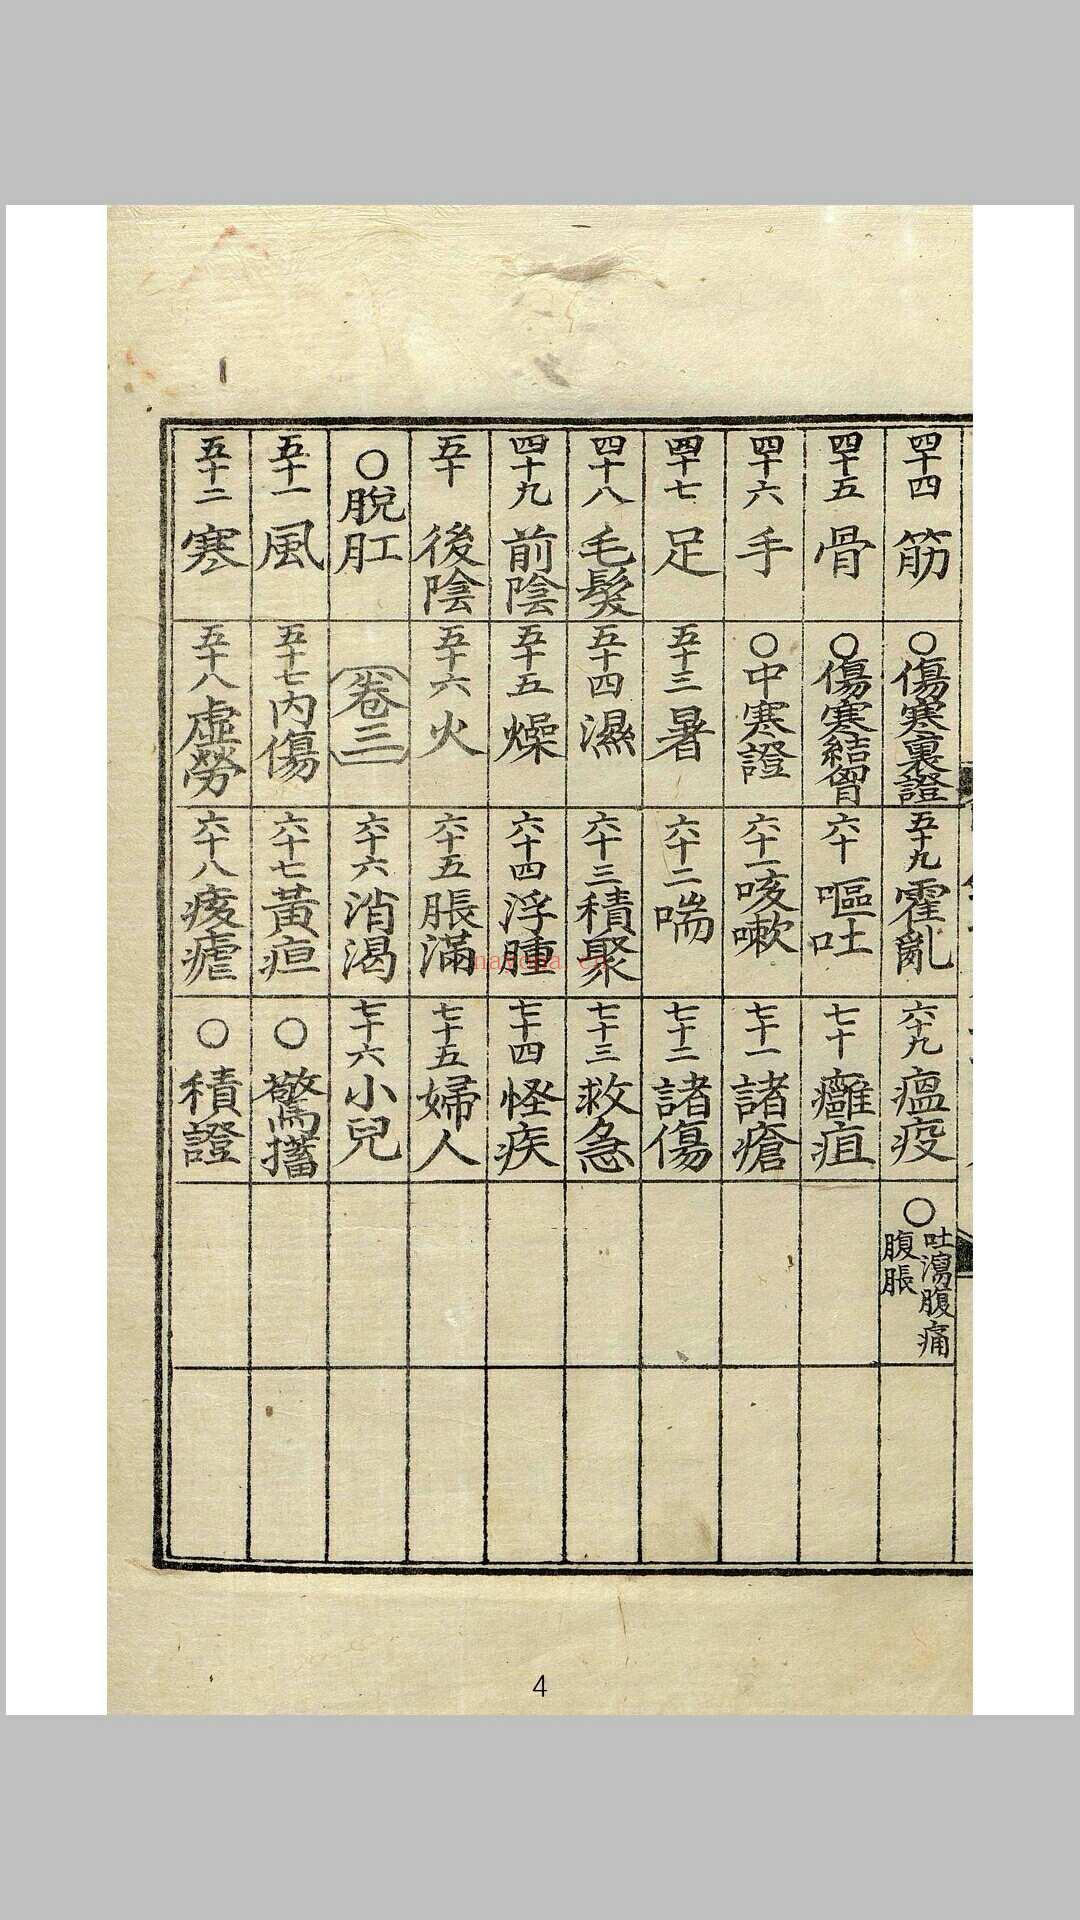 四十四 筋
四十五 骨
四十六 手
四十七 足
四十八 毛髮
四十九 前陰
五十 後陰
○脫肛
五十一 風
五十二 寒
○傷寒裏證
○傷寒結胷
○中寒證
五十三 暑
五十四 濕
五十五 燥
五十六 火
卷三
五十七 內傷
五十八 虛勞
五十九 霍亂
六十 嘔吐
六十一 咳嗽
六十二 喘
六十三 積聚
六十四 浮腫
六十五 脹滿
六十六 消渴
六十七 黃疸
六十八 痎瘧
六十九 瘟疫
七十 癰疽
七十一 諸瘡
七十二 諸傷
七十三 救急
七十四 怪疾
七十五 婦人
七十六 小兒
○驚搐
○積證
○吐瀉腹痛
腹脹
nayona.cn
4